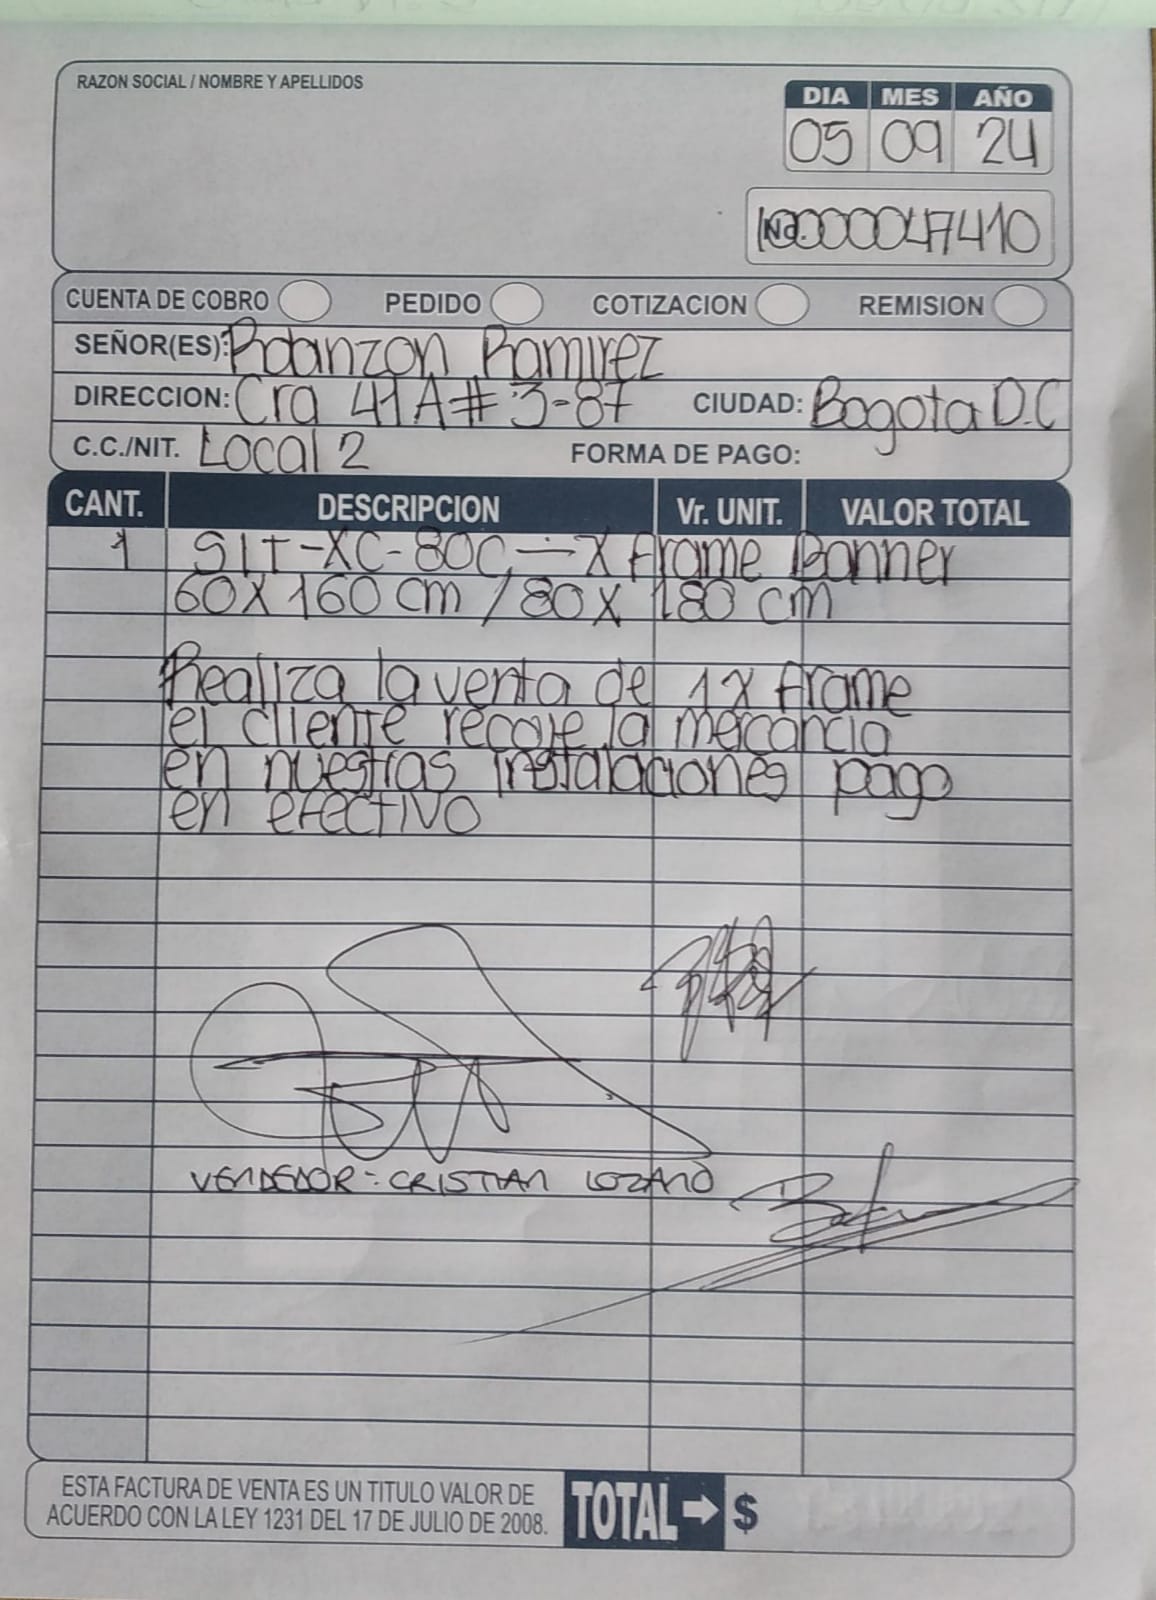 RAZON SOCIAL / NOMBRE Y APELLIDOS
DIA MES AÑO
05 09 24
No. 0000047410
CUENTA DE COBRO PEDIDO COTIZACION REMISION
SEÑOR(ES): Ramirez
DIRECCION: Cra 41A # 3-87 CIUDAD: Bogota D.C
C.C./NIT. Local 2 FORMA DE PAGO:
CANT. DESCRIPCION Vr. UNIT. VALOR TOTAL
1 SIT-XC-80C - X Frame Banner
60X160 cm / 80 X 180 cm
Realiza la venta de 1 X frame
el cliente recoje la mercancia
en nuestras instalaciones pago
en efectivo
VENDEDOR: CRISTIAN LOZANO
ESTA FACTURA DE VENTA ES UN TITULO VALOR DE
ACUERDO CON LA LEY 1231 DEL 17 DE JULIO DE 2008.
TOTAL → $